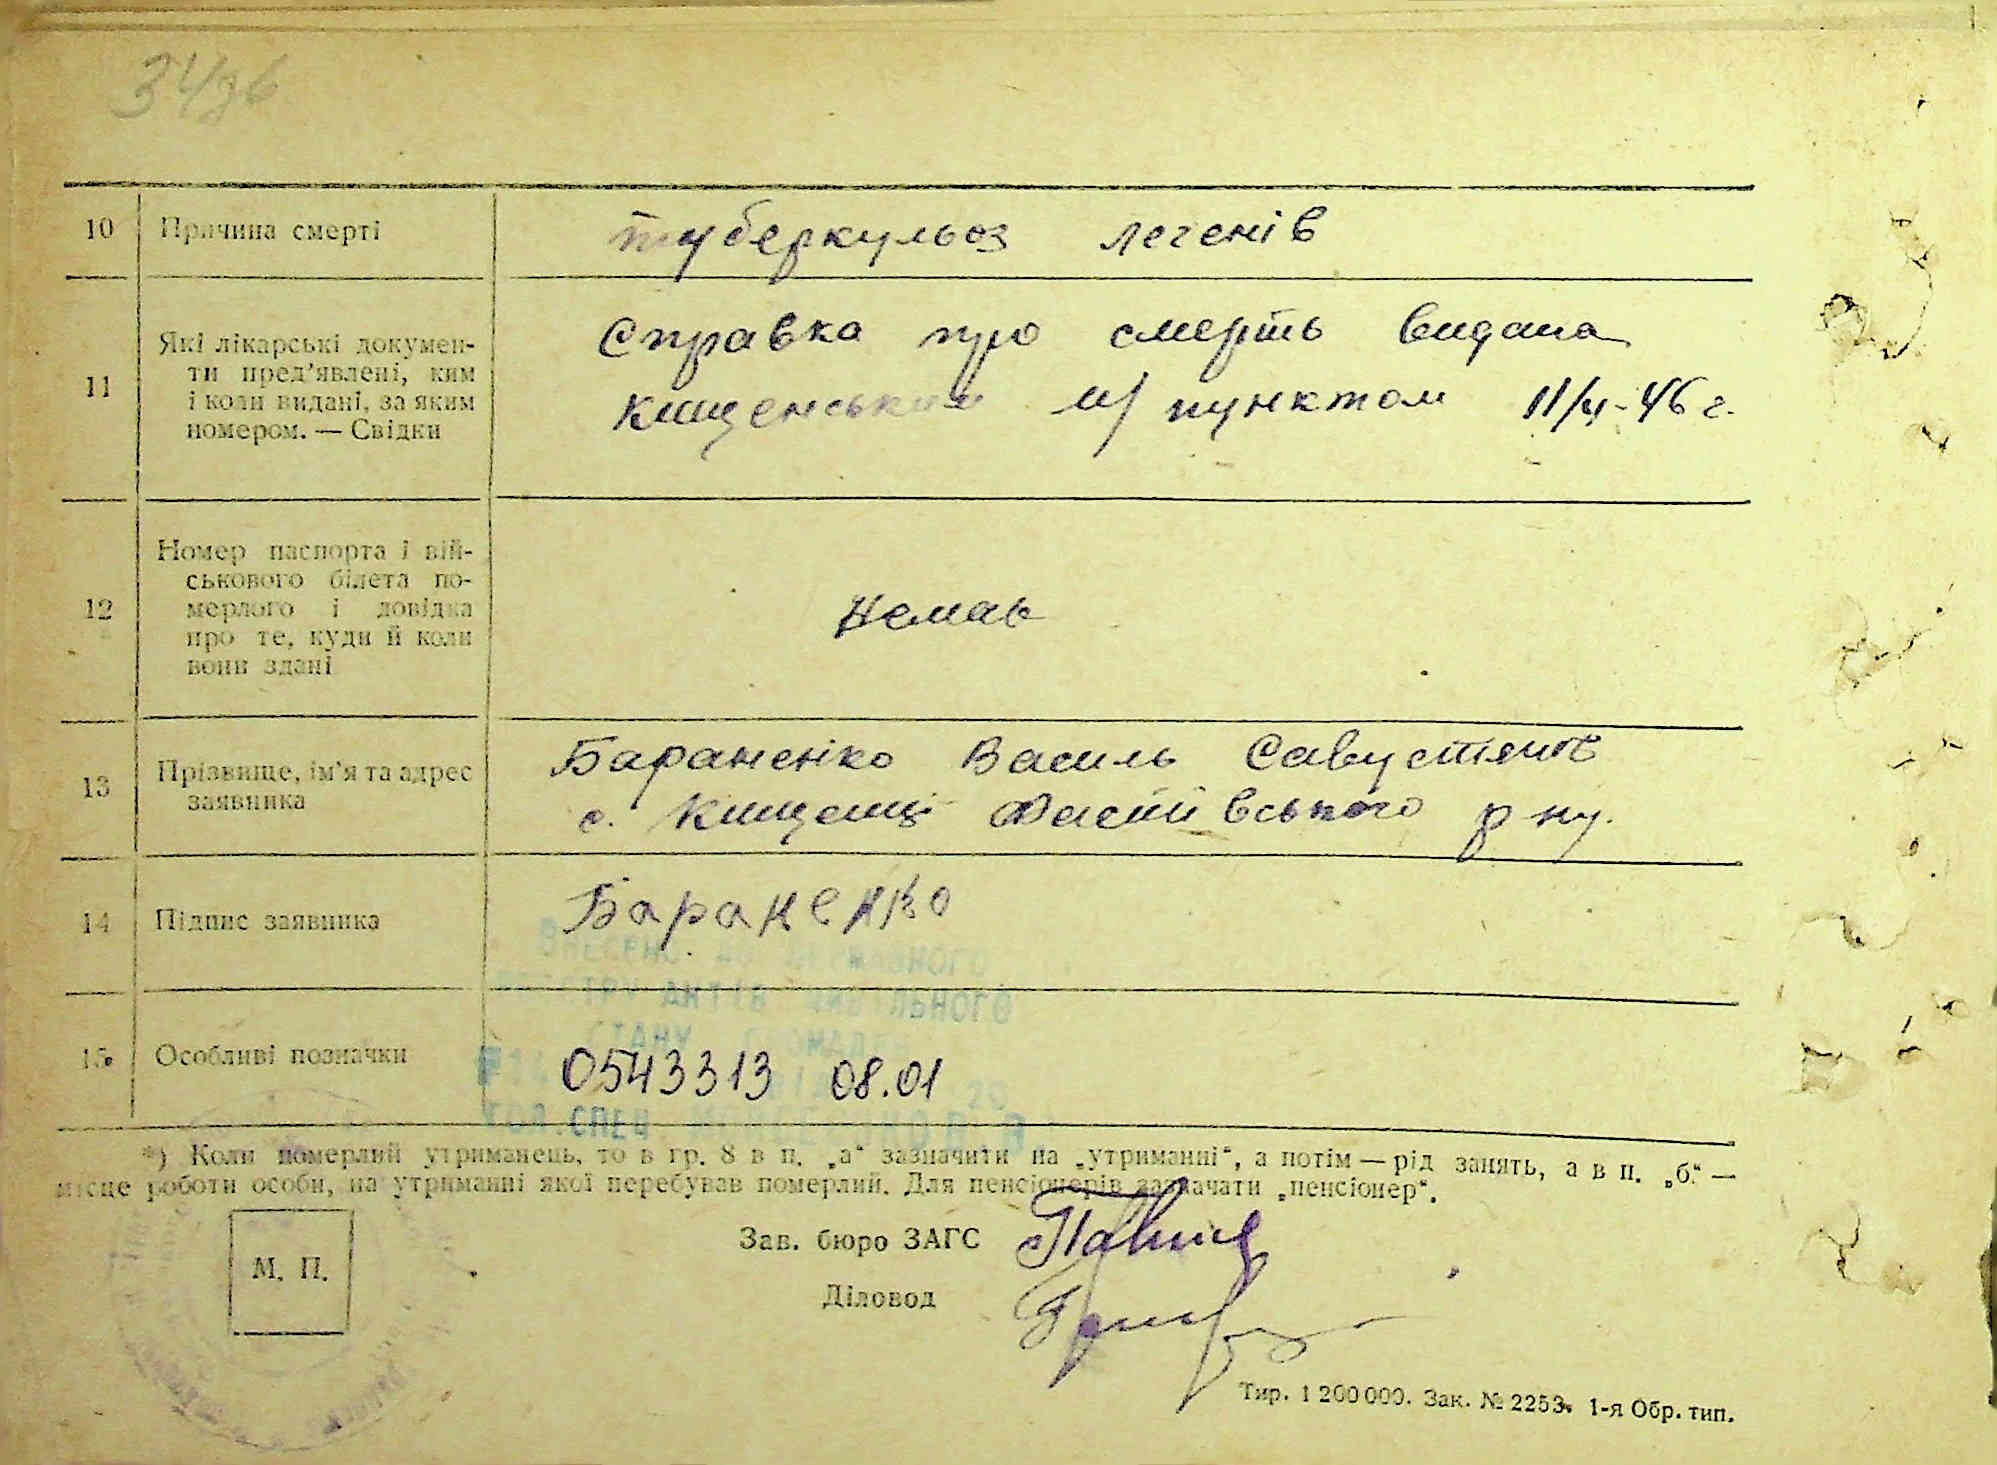 10 Причина смерті туберкульоз легенів
11 Які лікарські докумен-
ти пред'явлені, ким
і коли видані, за яким
номером. — Свідки
Справка про смерть видана
Кищенським м/пунктом 11/VI-46 г.
12 Номер паспорта і вій-
ськового білета по-
мерлого і довідка
про те, куди й коли
вони здані
Немає
13 Прізвище, ім'я та адрес
заявника
Бараненко Василь
с. Кищенці р ну.
14 Підпис заявника Бараненко
ВНЕСЕНО ДО ДЕРЖАВНОГО
РЕЄСТРУ АКТІВ ЦИВІЛЬНОГО
СТАНУ ГРОМАДЯН
15. Особливі позначки 0543313 08.01
ГОЛ.СПЕЦ.
*) Коли померлий утриманець, то в гр. 8 в п. „а“ зазначити на „утриманні“, а потім — рід занять, а в п. „б“ —
місце роботи особи, на утриманні якої перебував померлий. Для пенсіонерів зазначати „пенсіонер“.
Зав. бюро ЗАГС
М. П.
Діловод
Тир. 1 200 000. Зак. № 2253. 1-я Обр. тип.